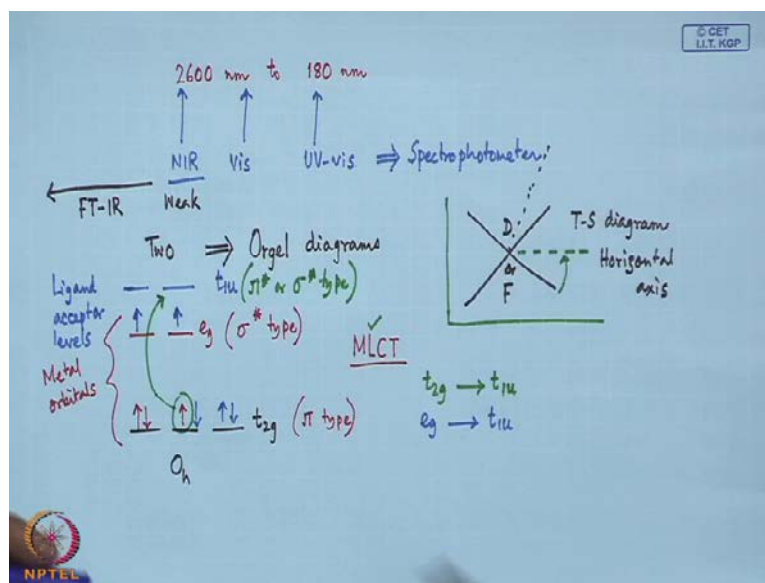 © CET
I.I.T. KGP
2600 nm to 180 nm
NIR Vis UV-vis ⇒ Spectrophotometer
FT-IR
Weak
Two ⇒ Orgel diagrams
D
or
F
T-S diagram
Horizontal
axis
Ligand
acceptor
levels
t1u (π* or σ* type)
eg (σ* type)
Metal
orbitals
MLCT
t2g (π type)
Oh
t2g → t1u
eg → t1u
NPTEL